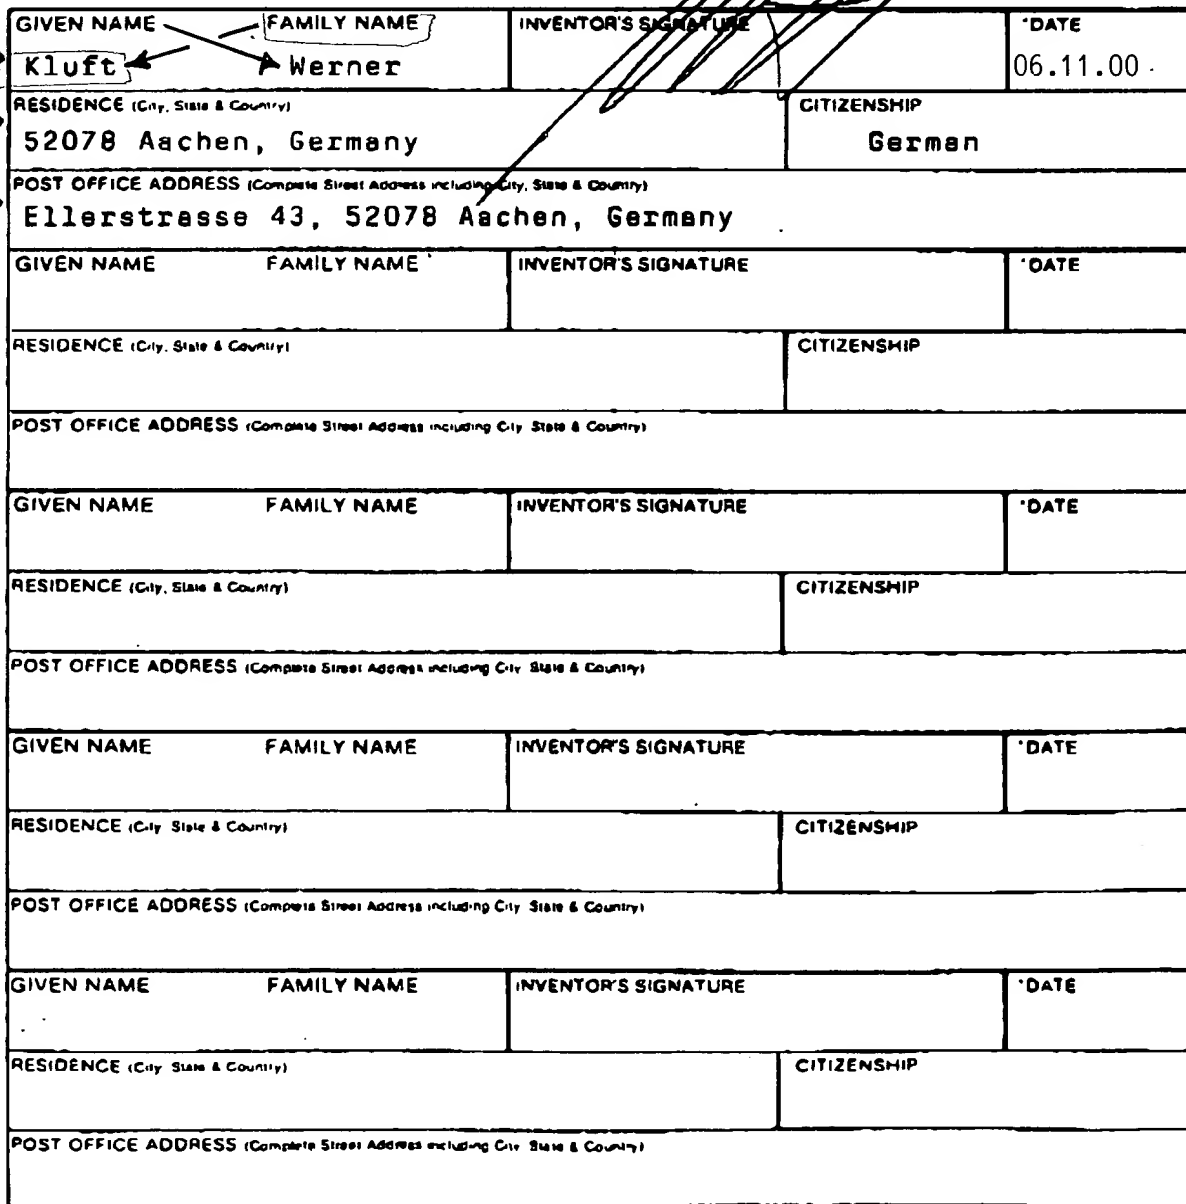 GIVEN NAME FAMILY NAME INVENTOR'S SIGNATURE *DATE
Kluft Werner 06.11.00
RESIDENCE (City, State & Country) CITIZENSHIP
52078 Aachen, Germany German
POST OFFICE ADDRESS (Complete Street Address including City, State & Country)
Ellerstrasse 43, 52078 Aachen, Germany
GIVEN NAME FAMILY NAME INVENTOR'S SIGNATURE *DATE
RESIDENCE (City, State & Country) CITIZENSHIP
POST OFFICE ADDRESS (Complete Street Address including City State & Country)
GIVEN NAME FAMILY NAME INVENTOR'S SIGNATURE *DATE
RESIDENCE (City, State & Country) CITIZENSHIP
POST OFFICE ADDRESS (Complete Street Address including City State & Country)
GIVEN NAME FAMILY NAME INVENTOR'S SIGNATURE *DATE
RESIDENCE (City State & Country) CITIZENSHIP
POST OFFICE ADDRESS (Complete Street Address including City State & Country)
GIVEN NAME FAMILY NAME INVENTOR'S SIGNATURE *DATE
RESIDENCE (City State & Country) CITIZENSHIP
POST OFFICE ADDRESS (Complete Street Address including City State & Country)